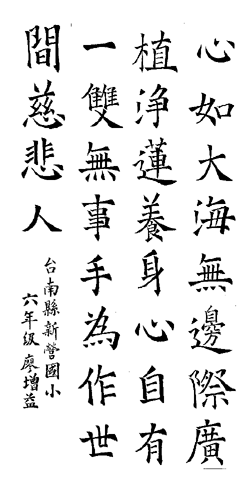 心如大海無邊際廣
植净蓮養身心自有
一雙無事手為作世
間慈悲人
台南縣新營國小
六年級廖增益